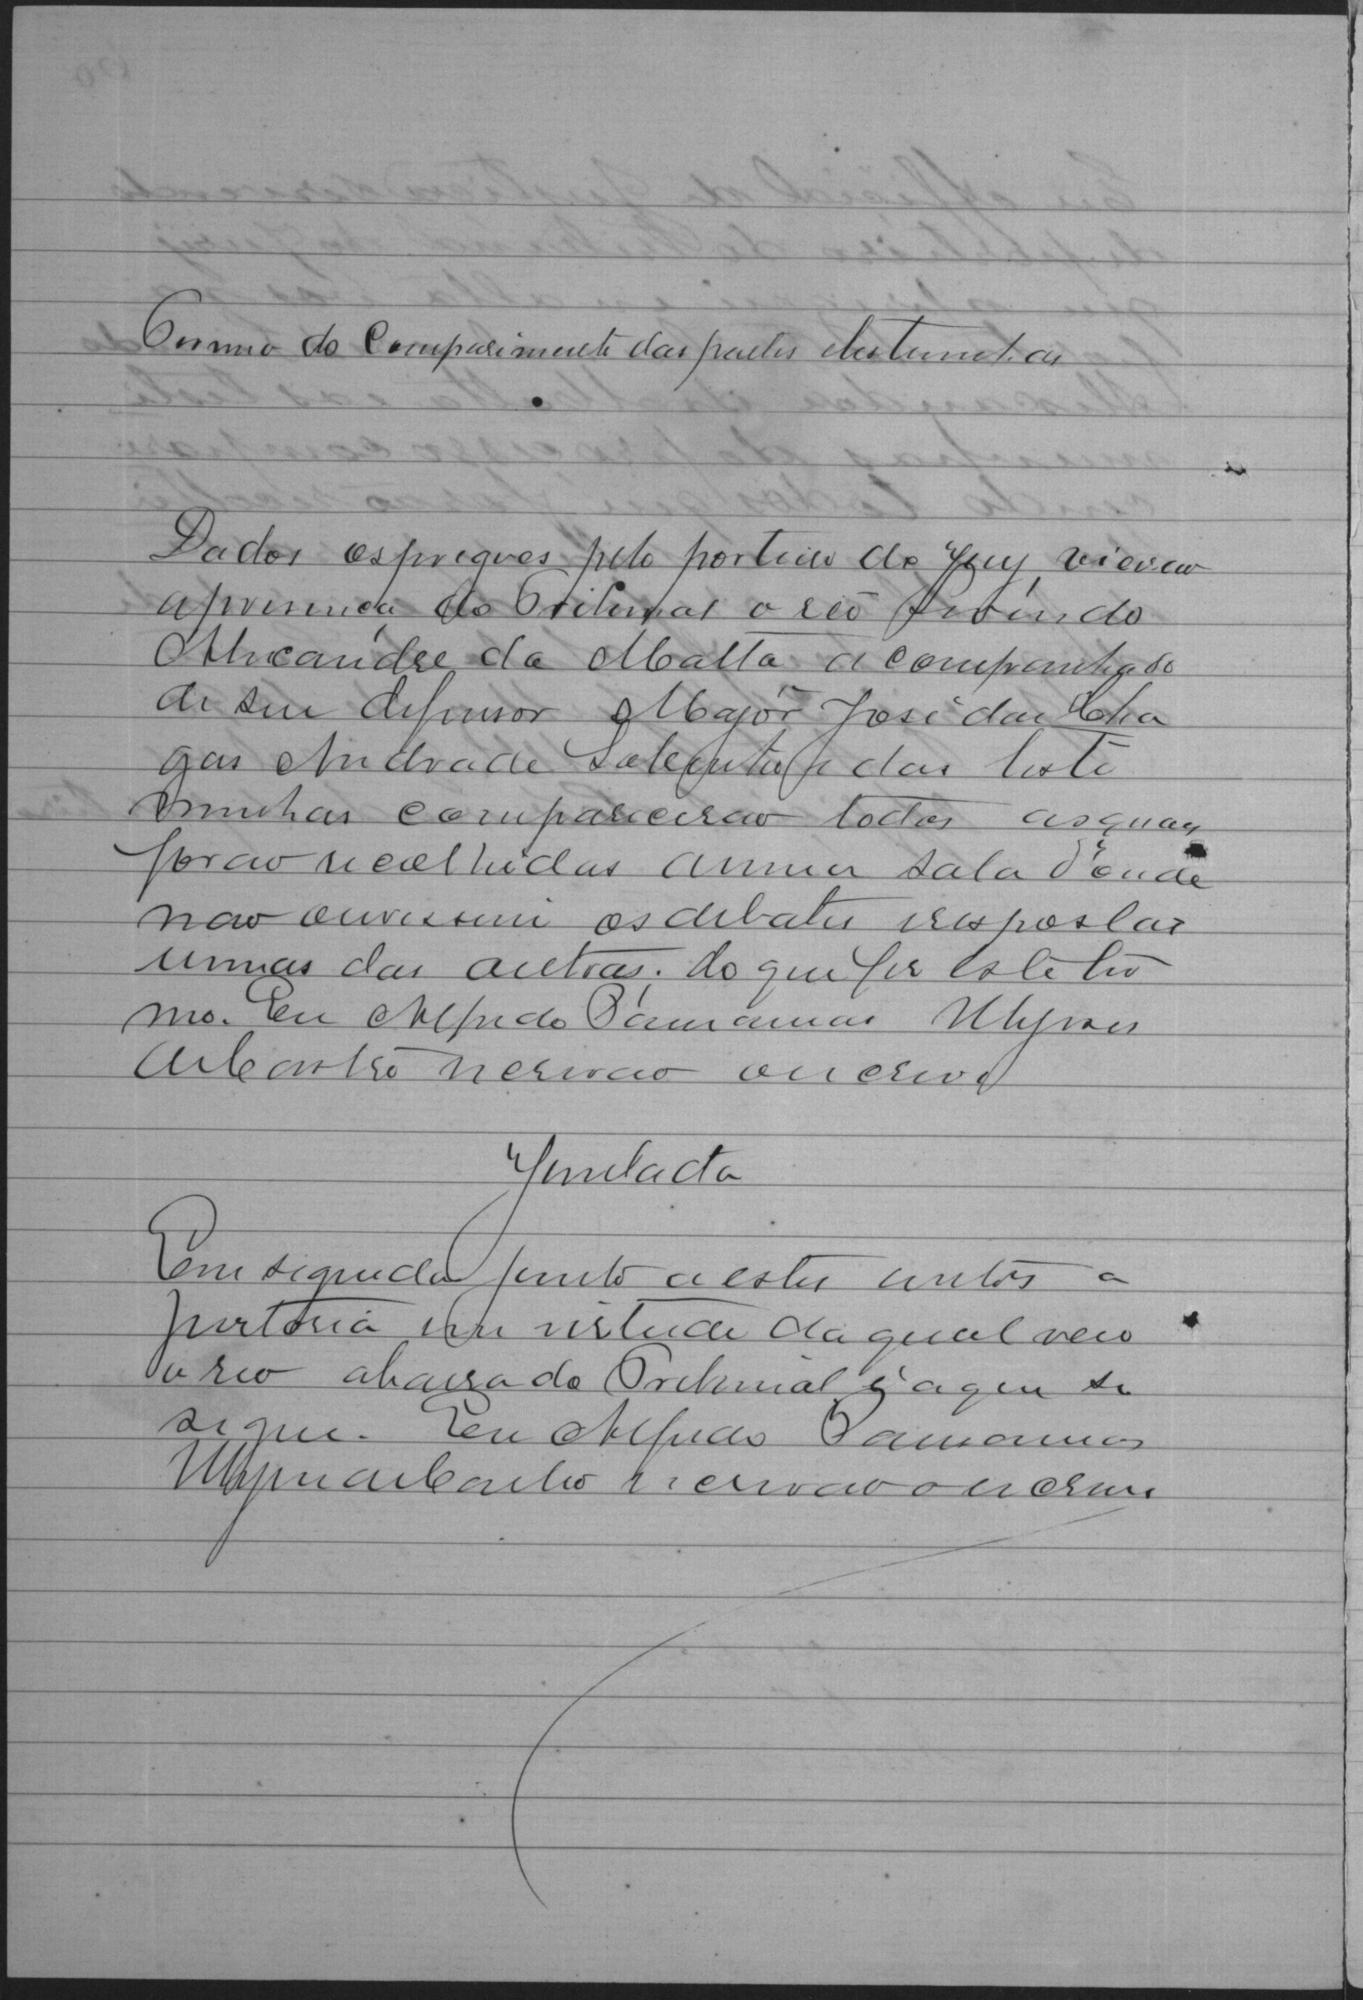 Termo do Comparimento das partes e testemunhas
Dados os pregoes pelo porteiro do Jury, vierao
a presença do Tribunal o reo
Alexandre da Matta acompanhado
de seu defensor Major José das Cha
gas Andrade e das teste
munhas comparecerao todas as quaes
forao recolhidas a uma sala d'onde
nao ouvissem os debates respostas
umas das outras. do que fiz este ter
mo. Eu Alfredo Ulysses
de Castro escrivao o escrevi
Juntada
Em seguida junto a estes autos a
portaria em virtude da qual veio
o reo a barra do Tribunal é a que se
segue. Eu Alfredo
Ulysses de Castro escrivao o escrevi